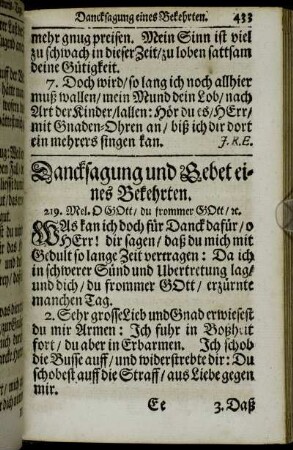 Dancksagung eines Bekehrten. 433
mehr gnug preisen. Mein Sinn ist viel
zu schwach in dieser Zeit/ zu loben sattsam
deine Gütigkeit.
7. Doch wird/ so lang ich noch allhier
muß wallen/ mein Mund dein Lob/ nach
Art der Kinder/ lallen: Hör du es/ HErr/
mit Gnaden-Ohren an/ biß ich dir dort
ein mehrers singen kan. J. R. E.
Dancksagung und Gebet ei-
nes Bekehrten.
219. Mel. O GOtt/ du frommer GOtt/ ꝛc.
WAs kan ich doch für Danck dafür/ o
HErr! dir sagen/ daß du mich mit
Gedult so lange Zeit vertragen: Da ich
in schwerer Sünd und Ubertretung lag/
und dich/ du frommer GOtt/ erzürnte
manchen Tag.
2. Sehr grosse Lieb und Gnad erwiesest
du mir Armen: Ich fuhr in Boßheit
fort/ du aber in Erbarmen. Ich schob
die Busse auff/ und widerstrebte dir: Du
schobest auff die Straff/ aus Liebe gegen
mir.
Ee 3. Daß